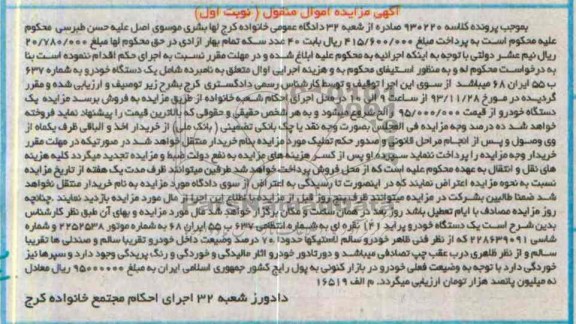 آگهی مزایده اموال منقول ( نوبت اول)
بموجب پرونده کلاسه ۹۳۰۲۲۰ صادره از شعبه ۳۲ دادگاه عمومی خانواده کرج لها بشری موسوی اصل علیه حسن طبرسی محکوم
علیه محکوم است به پرداخت مبلغ ۴۱۵/۶۰۰/۰۰۰ ریال بابت ۴۰ عدد سکه تمام بهار ازادی در حق محکوم لها مبلغ ۲۰/۷۸۰/۰۰۰
ریال نیم عشر دولتی با توجه به اینکه اجرائیه به محکوم علیه ابلاغ شده و در مهلت مقرر نسبت به اجرای حکم اقدام ننموده است بنا
به درخواست محکوم له و به منظور استیفای محکوم به و هزینه اجرایی اوال متعلق به نامبرده شامل یک دستگاه خودرو به شماره ۶۳۷
ب ۵۵ ایران ۶۸ میباشد از سوی این اجرا توقیف و توسط کارشناس رسمی دادگستری کرج بشرح زیر توصیف و ارزیابی شده و مقرر
گردیده در مورخ ۹۳/۱۱/۲۸ از ساعت در محل اجرای احکام شعبه خانواده از طریق مزایده به فروش برسد مزایده یک
دستگاه خودرو از قیمت ۹۵/۰۰۰/۰۰۰ ریال شروع میشود و به هر شخص حقیقی و حقوقی که بالاترین قیمت را پیشنهاد نماید فروخته
خواهد شد ده درصد وجه مزایده فی المجلس بصورت وجه نقد یا چک بانکی تضمینی ( بانک ملی ) از خریدار اخذ و الباقی ظرف یکماه از
وی وصول و پس از انجام مراحل قانونی و صدور حکم تملیک مورد مزایده بنام خریدار منتقل خواهد شد در صورتیکه در مهلت مقرر
خریدار وجه مزایده را پرداخت ننماید سپرده او پس از کسر هزینه های مزایده به نفع دولت ضبط و مزایده تجدید میگردد کلیه هزینه
های نقل و انتقال به عهده محکوم علیه است که از محل فروش پرداخت خواهد شد طرفین میتوانند ظرف مدت یک هفته از تاریخ مزایده
نسبت به نحوه مزایده اعتراض نمایند که در اینصورت تا رسیدگی به اعتراض از سوی دادگاه مورد مزایده به نام خریدار منتقل نخواهد
شد ضمنا طالبین بشرکت در مزایده میتوانند ظرف پنج روز قبل از مزایده با اطلاع این اجرا از مال مورد مزایده بازدید نمایند .چنانچه
روز مزایده مصادف با ایام تعطیل باشد روز بعد در همان ساعت و مکان برگزار خواهد شد مال مورد مزایده و بهای آن طبق نظر کارشناس
بدین شرح است یک دستگاه خودرو پراید نقره ای به شماره انتظامی ۶۳۷ ب ۵۵ ایران ۶۸ به شماره موتور ۲۲۵۲۵۳۸ و شماره
شاسی ۲۲۸۶۳۹۰۹۱ که از نظر فنی ظاهر خودرو سالم لاستیکها حدودا ۷۰ درصد وضعیت داخل خودرو تقریبا سالم و صندلی ها تقریبا
سالم و از نظر ظاهری درب عقب چپ تصادفی میباشد و دورتادور خودرو اثار مالیدگی و خوردگی و رنگ پریدگی وجود دارد و سپرها نیز
خوردگی دارد با توجه به وضعیت فعلی خودرو در بازار کنونی به پول رایج کشور جمهوری اسلامی ایران به مبلغ ۹۵۰۰۰۰۰۰ ریال معادل
نه میلیون پانصد هزار تومان ارزیابی میگردد. م الف ۱۶۵۱۹
دادورز شعبه ۳۲ اجرای احکام مجتمع خانواده کرج